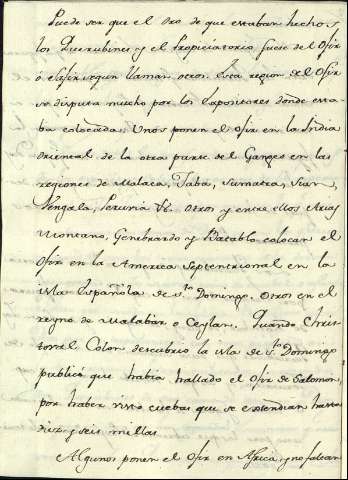 Puede ser que el Oro de que estaban hechos
los Querubines y el Propiciatorio fuese del Ofir
ó Efir segun llaman otros. Esta region del Ofir
se disputa mucho por los Expositores donde esta-
ba colocada. Unos ponen el Ofir en la India
oriental de la otra parte del Ganges en las
regiones de Malaca, Jaba, Sumatra, Sian,
Vengala, &c. Otros y entre ellos Arias
Montano, Genebrardo y Batablo colocan el
Ofir en la America Septentrional en la
isla Española de S.to Domingo. Otros en el
reyno de Malabar o Ceylan. Quando Chris-
toval Colon descubrio la isla de S.to Domingo
publicó que habia hallado el Ofir de Salomon,
por haber visto cuebas que se extendian hasta
diez y seis millas.
Algunos ponen el Ofir en Africa, y no faltan